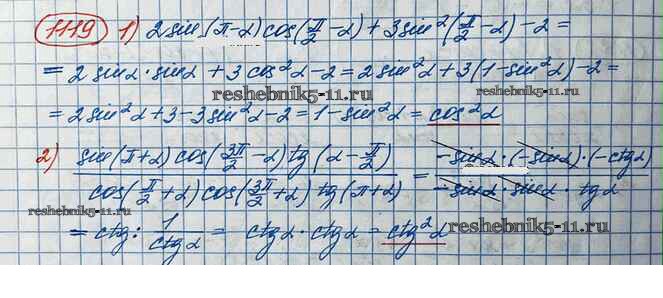 1119 1) 2 sin (π-α) cos(π/2 - α) + 3 sin²(π/2 - α) - 2 =
= 2 sinα · sinα + 3 cos²α - 2 = 2 sin²α + 3(1 - sin²α) - 2 =
reshebnik5-11.ru
= 2 sin²α + 3 - 3 sin²α - 2 = 1 - sin²α = cos²α
reshebnik5-11.ru
2) sin(π+α) cos(3π/2 - α) tg(α - π/2) / cos(π/2 + α) cos(3π/2 + α) tg(π+α) = -sinα · (-sinα) · (-ctgα) / -sinα · sinα · tgα
reshebnik5-11.ru
reshebnik5-11.ru
= ctg : 1/ctgα = ctgα · ctgα = ctg²α
reshebnik5-11.ru